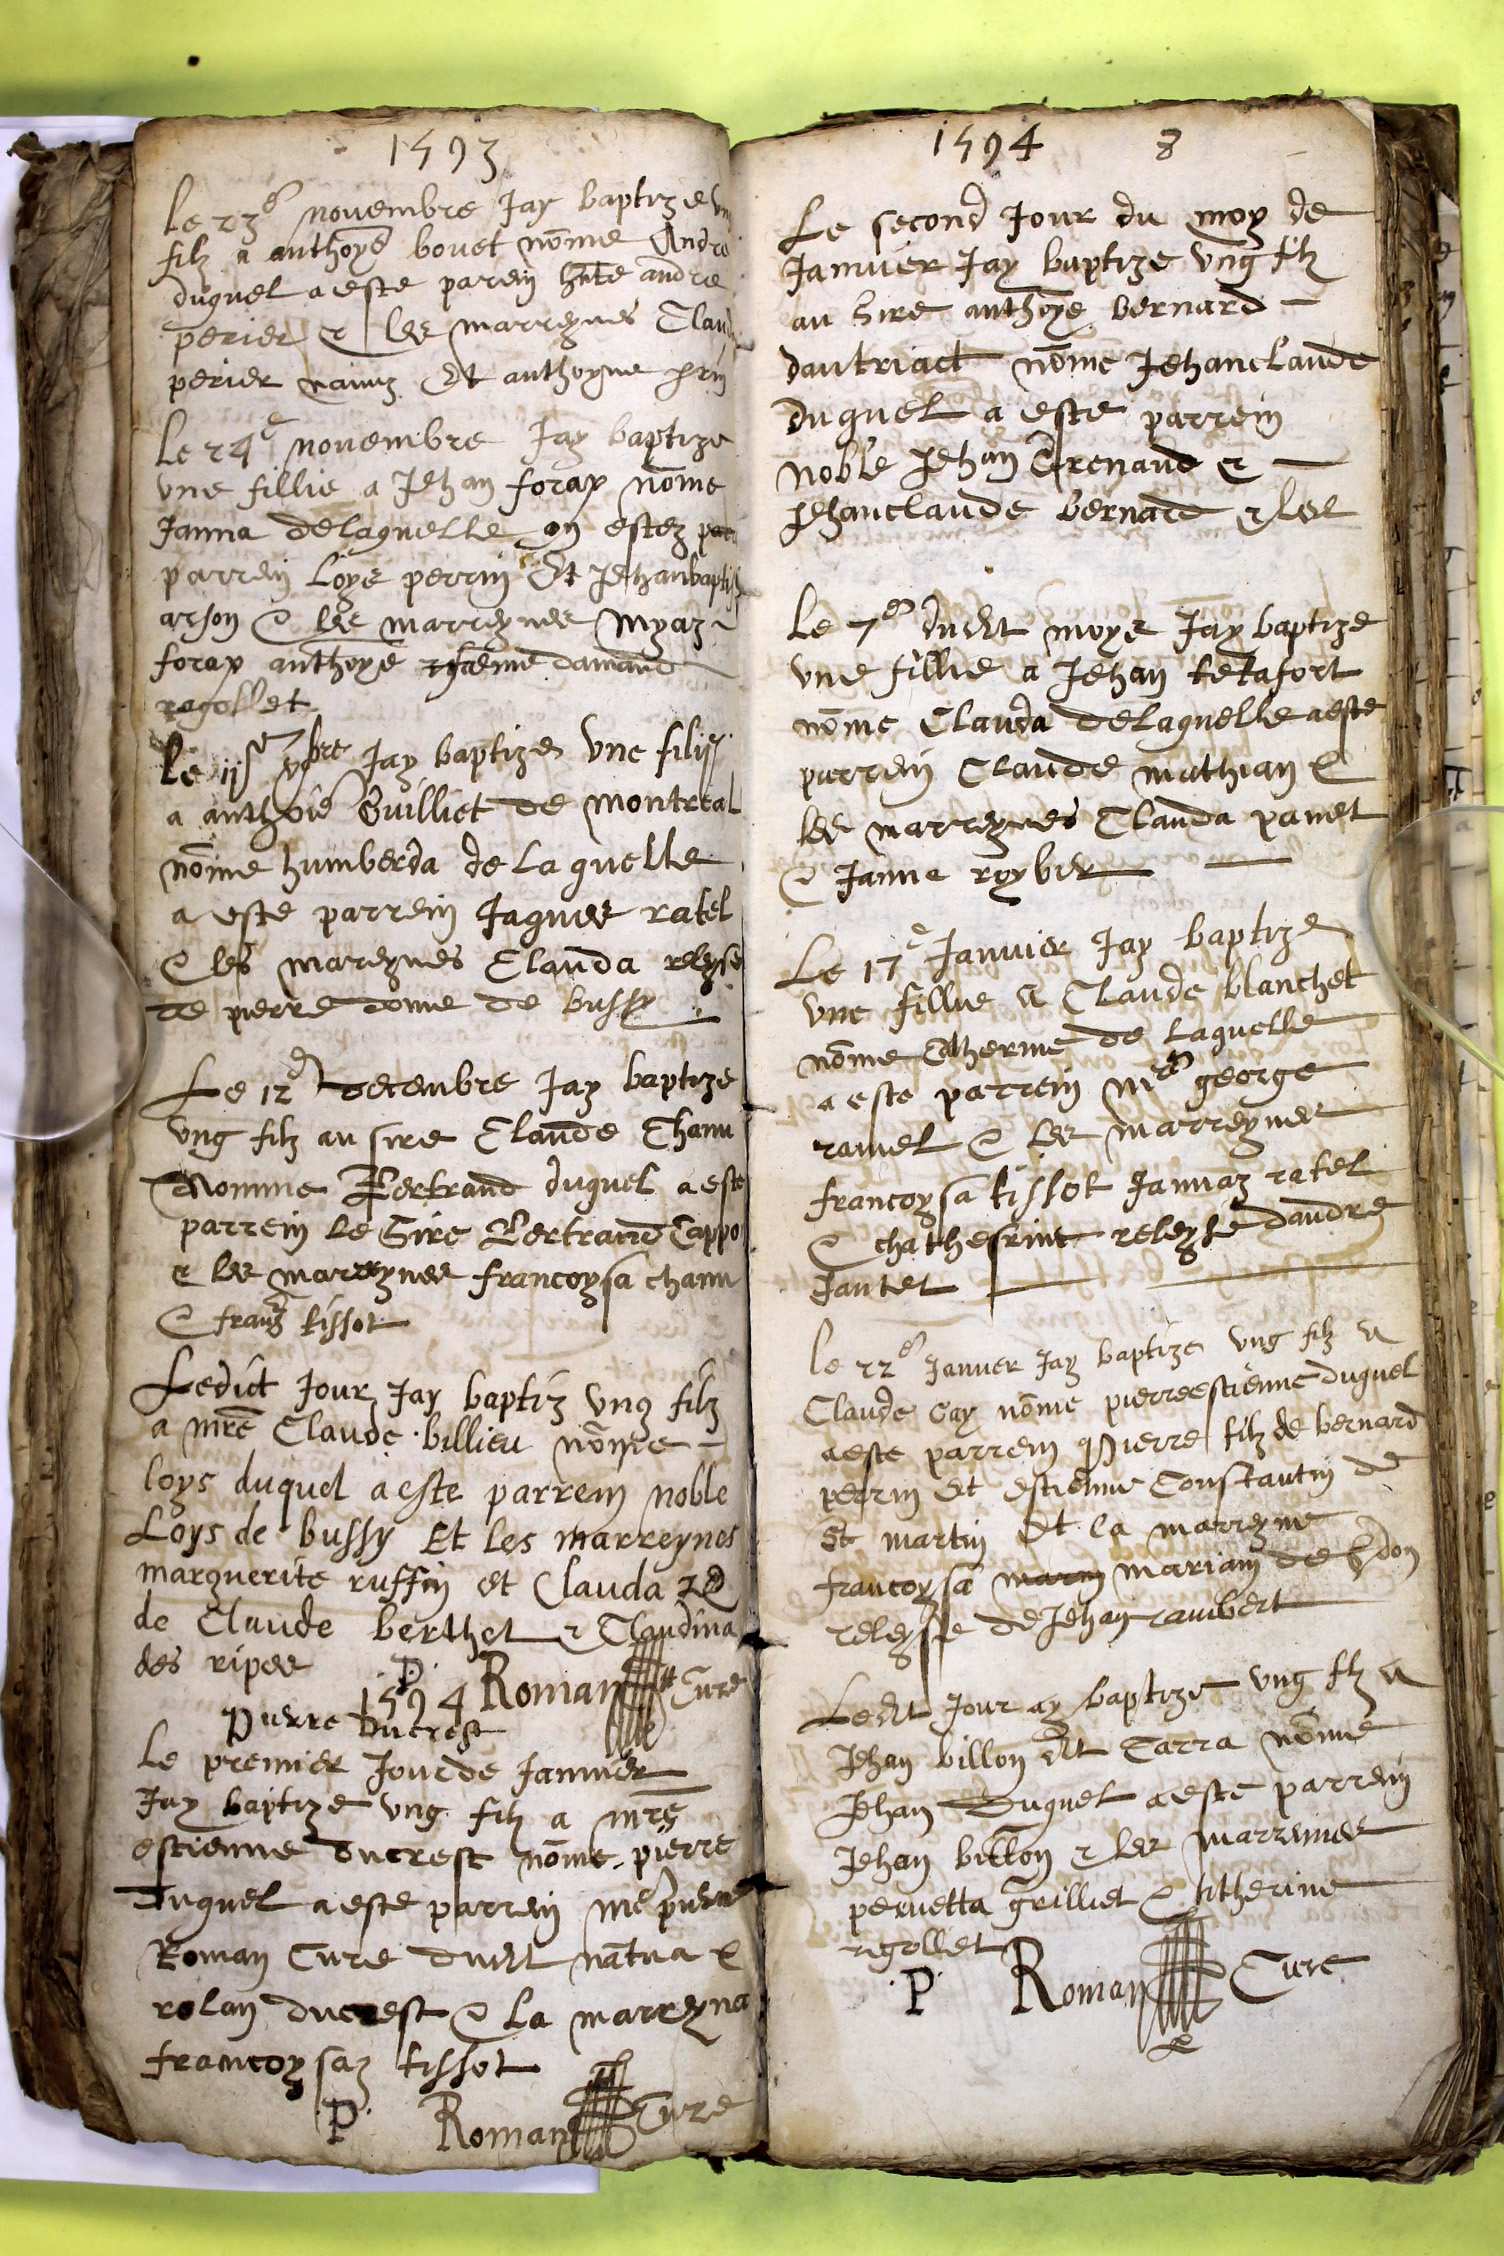 1593
le 23e novembre Jay baptize vn
filz a anthoyne bovet nōme Andre
duquel a este parein andre
perier & les marreynes Claud
perier Et anthoyne
le 24e novembre Jay baptize
vne fillie a Jehan forax nōme
Janna delaquelle on estez
parrein Loys perrin Et Jehanbaptis
arson & les marreynes Myaz
forax anthoyē
ragollet
le ijs xbre Jay baptize vne
a anthoie Guilliet de montreal
nōme humberda de la quelle
a este parrein Jaques ratel
& les mareynes Clauda releyse
de pierre dome de bussy
Le 12e decembre Jay baptize
vng filz au sire Claude Chanu
nomme Bertrand duquel a este
parrein le Sire Bertrand Cappo
& les marreynes francoysa chanu
& tissot
Ledict Jour Jay baptiz vng filz
a mre Claude billieu nōme
loys duquel a este parrein noble
Loys de bussy Et les marreynes
marguerite ruffin et Clauda
de Claude berthet & Claudina
des ripes
P. Roman Cure
1594
Pierre Ducrest
le premier Jour de Janvier
Jay baptize vng filz a mre
estienne ducrest nōme pierre
duquel a este parrein me pierre
Roman Cure dudt nantua &
rolan ducrest & la marreyna
francoysaz tissot
P. Roman Cure
1594 8
Le second Jour du moy de
Janvier Jay baptize vng filz
au Sire anthoyē bernard
dautriact nōme Jehanclaude
duquel a este parrein
noble Jehan Grenaud &
Jehanclaude bernard & les
le 7e dudt moys Jay baptize
vne fillie a Jehan tetafort
nōme Clauda delaquelle a este
parrein Claude mathian &
les marreynes Clauda panet
& Janna royber
Le 17e Janvier Jay baptize
vne fillie a Claude blanchet
nōme Catherine de laquelle
a este parrein me george
ramel & les marreynes
francoysa tissot Jannaz ratel
& chatherine releyse dandre
Jantet
le 22e Janvier Jay baptize vng filz a
Claude Cay nōme pierreestienne duquel
a este parrein Pierre filz de bernard
perrin et estienne Constantin de
St martin Et la marreyne
francoysa mariam de
releysse de Jehan rambert
Ledt Jour ay baptize vng filz a
Jehan billon dt Carra nōme
Jehan Duquel a este parrein
Jehan billon & les marreines
pernetta grilliet & Catherine
rigollet
P Roman Cure